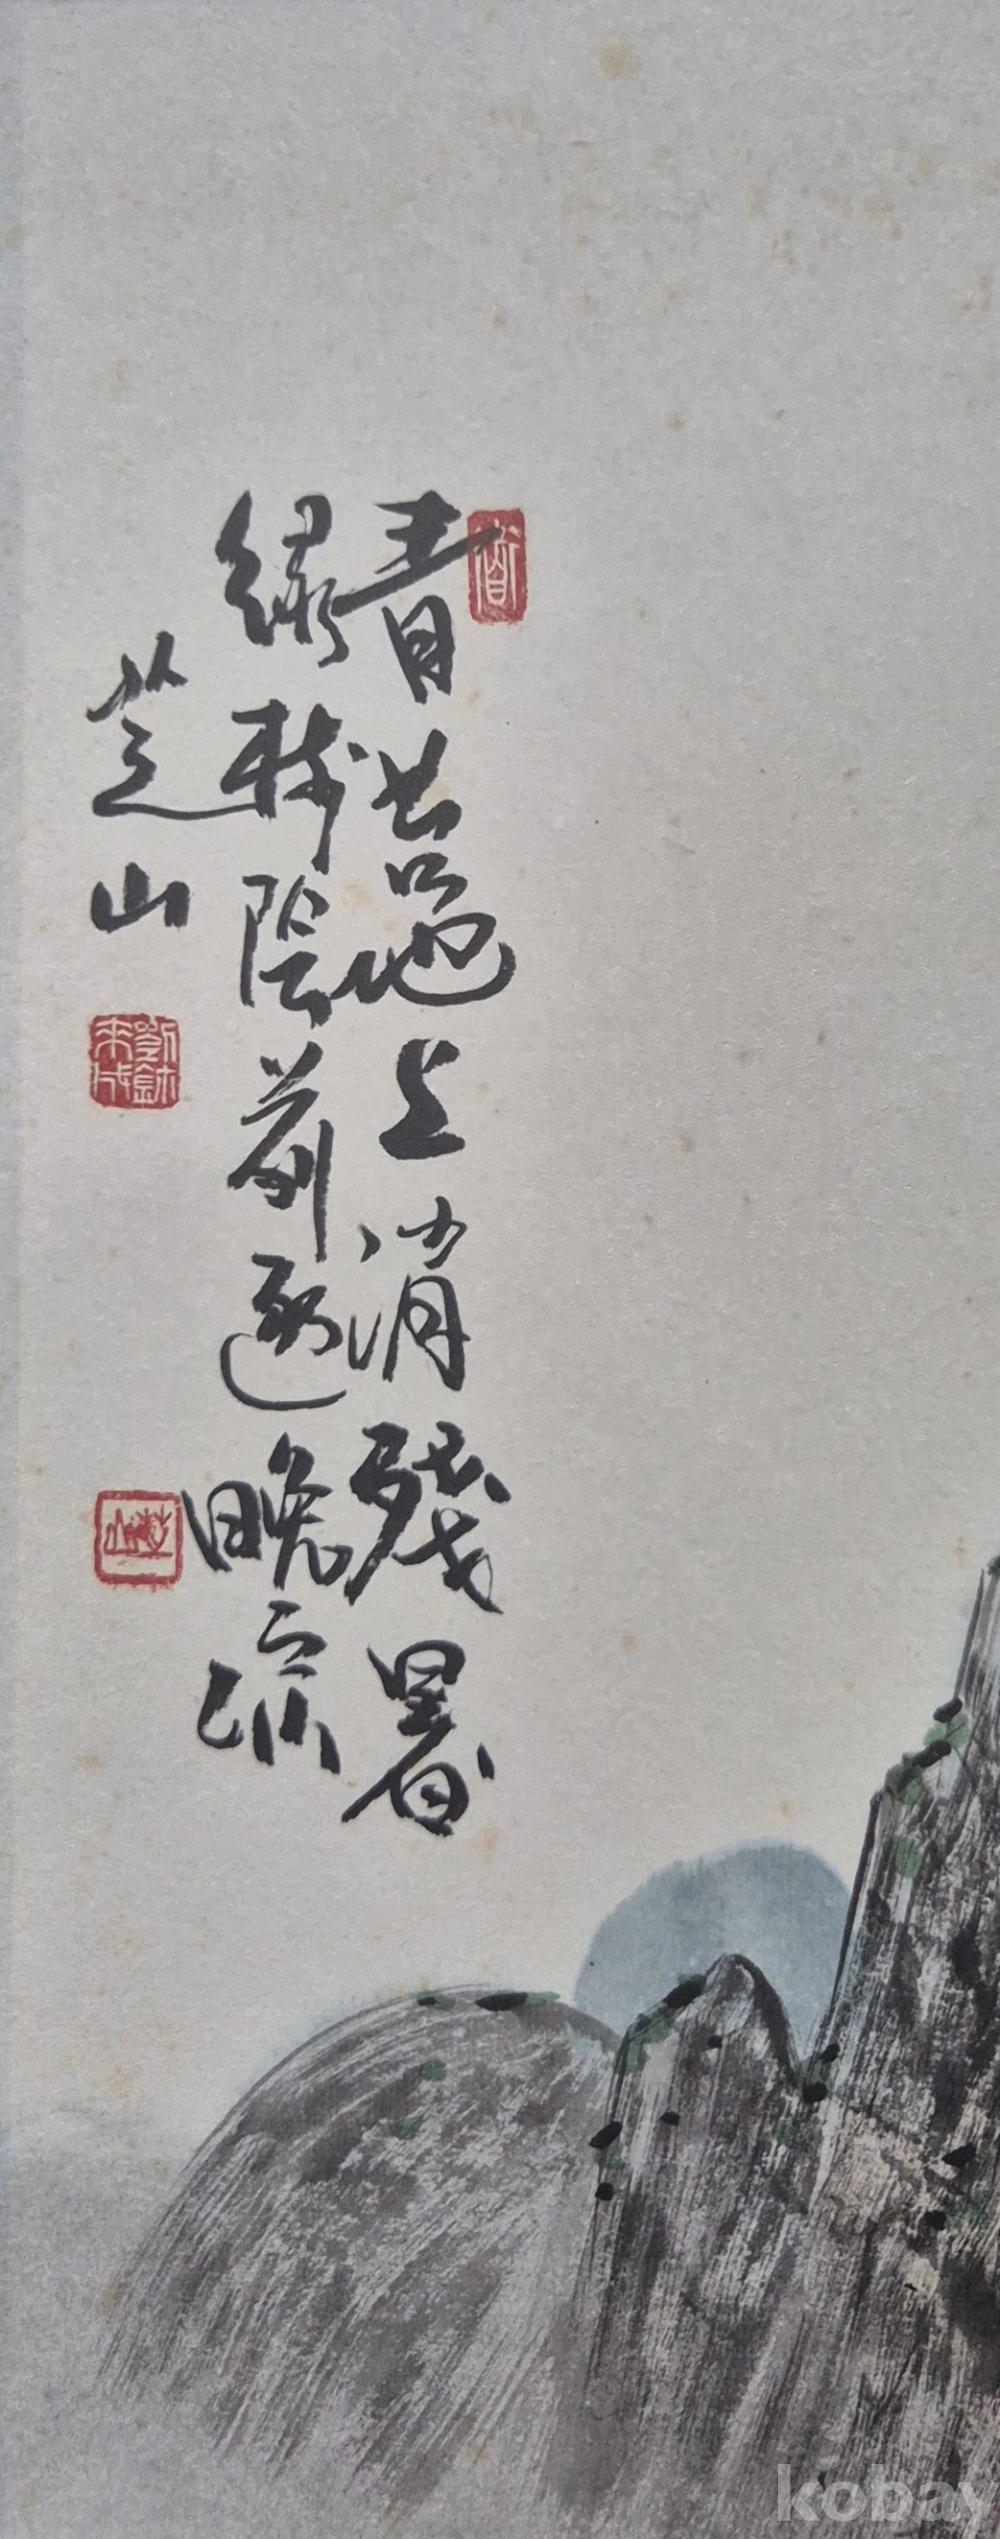 青苔地上消殘暑
綠樹陰前逐晚凉
芝山
kobay